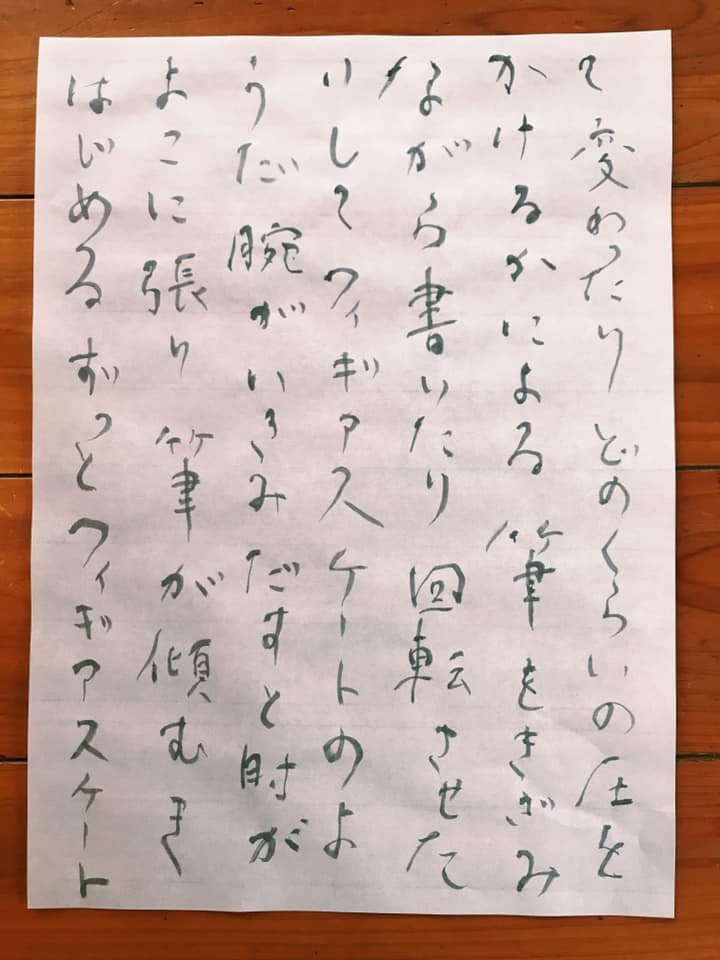 て変わったり どのくらいの圧を
かけるかによる 筆をきざみ
ながら書いたり 回転させた
りしてフィギアスケートのよ
うだ 腕がいきみだすと肘が
よこに張り 筆が傾むき
はじめる ずっとフィギアスケート